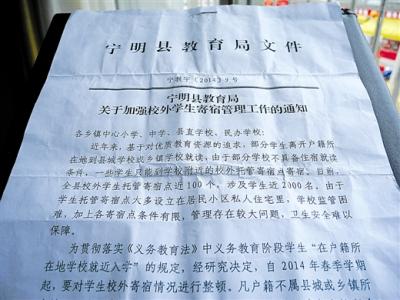 宁明县教育局文件
宁教字〔2014〕9号
宁明县教育局
关于加强校外学生寄宿管理工作的通知
各乡镇中心小学、中学、县直学校、民办学校：
近年来，基于对优质教育资源的追求，部分学生离开户籍所
在地到县城学校或乡镇学校就读，由于部分学校不具备住宿就读
条件，一些学生只能到学校附近的校外托管寄宿点寄宿。目前，
全县校外学生托管寄宿点近100个，涉及学生近2000名，由于
学生托管寄宿点大多设立在居民小区私人住宅里，学校监管困
难，加上各寄宿点条件有限，管理存在较大问题，卫生安全难以
保障。
为贯彻落实《义务教育法》中义务教育阶段学生“在户籍所
在地学校就近入学”的规定，经研究决定，自2014年春季学期
起，要对学生校外寄宿情况进行整顿。凡户籍不属县城或乡镇所